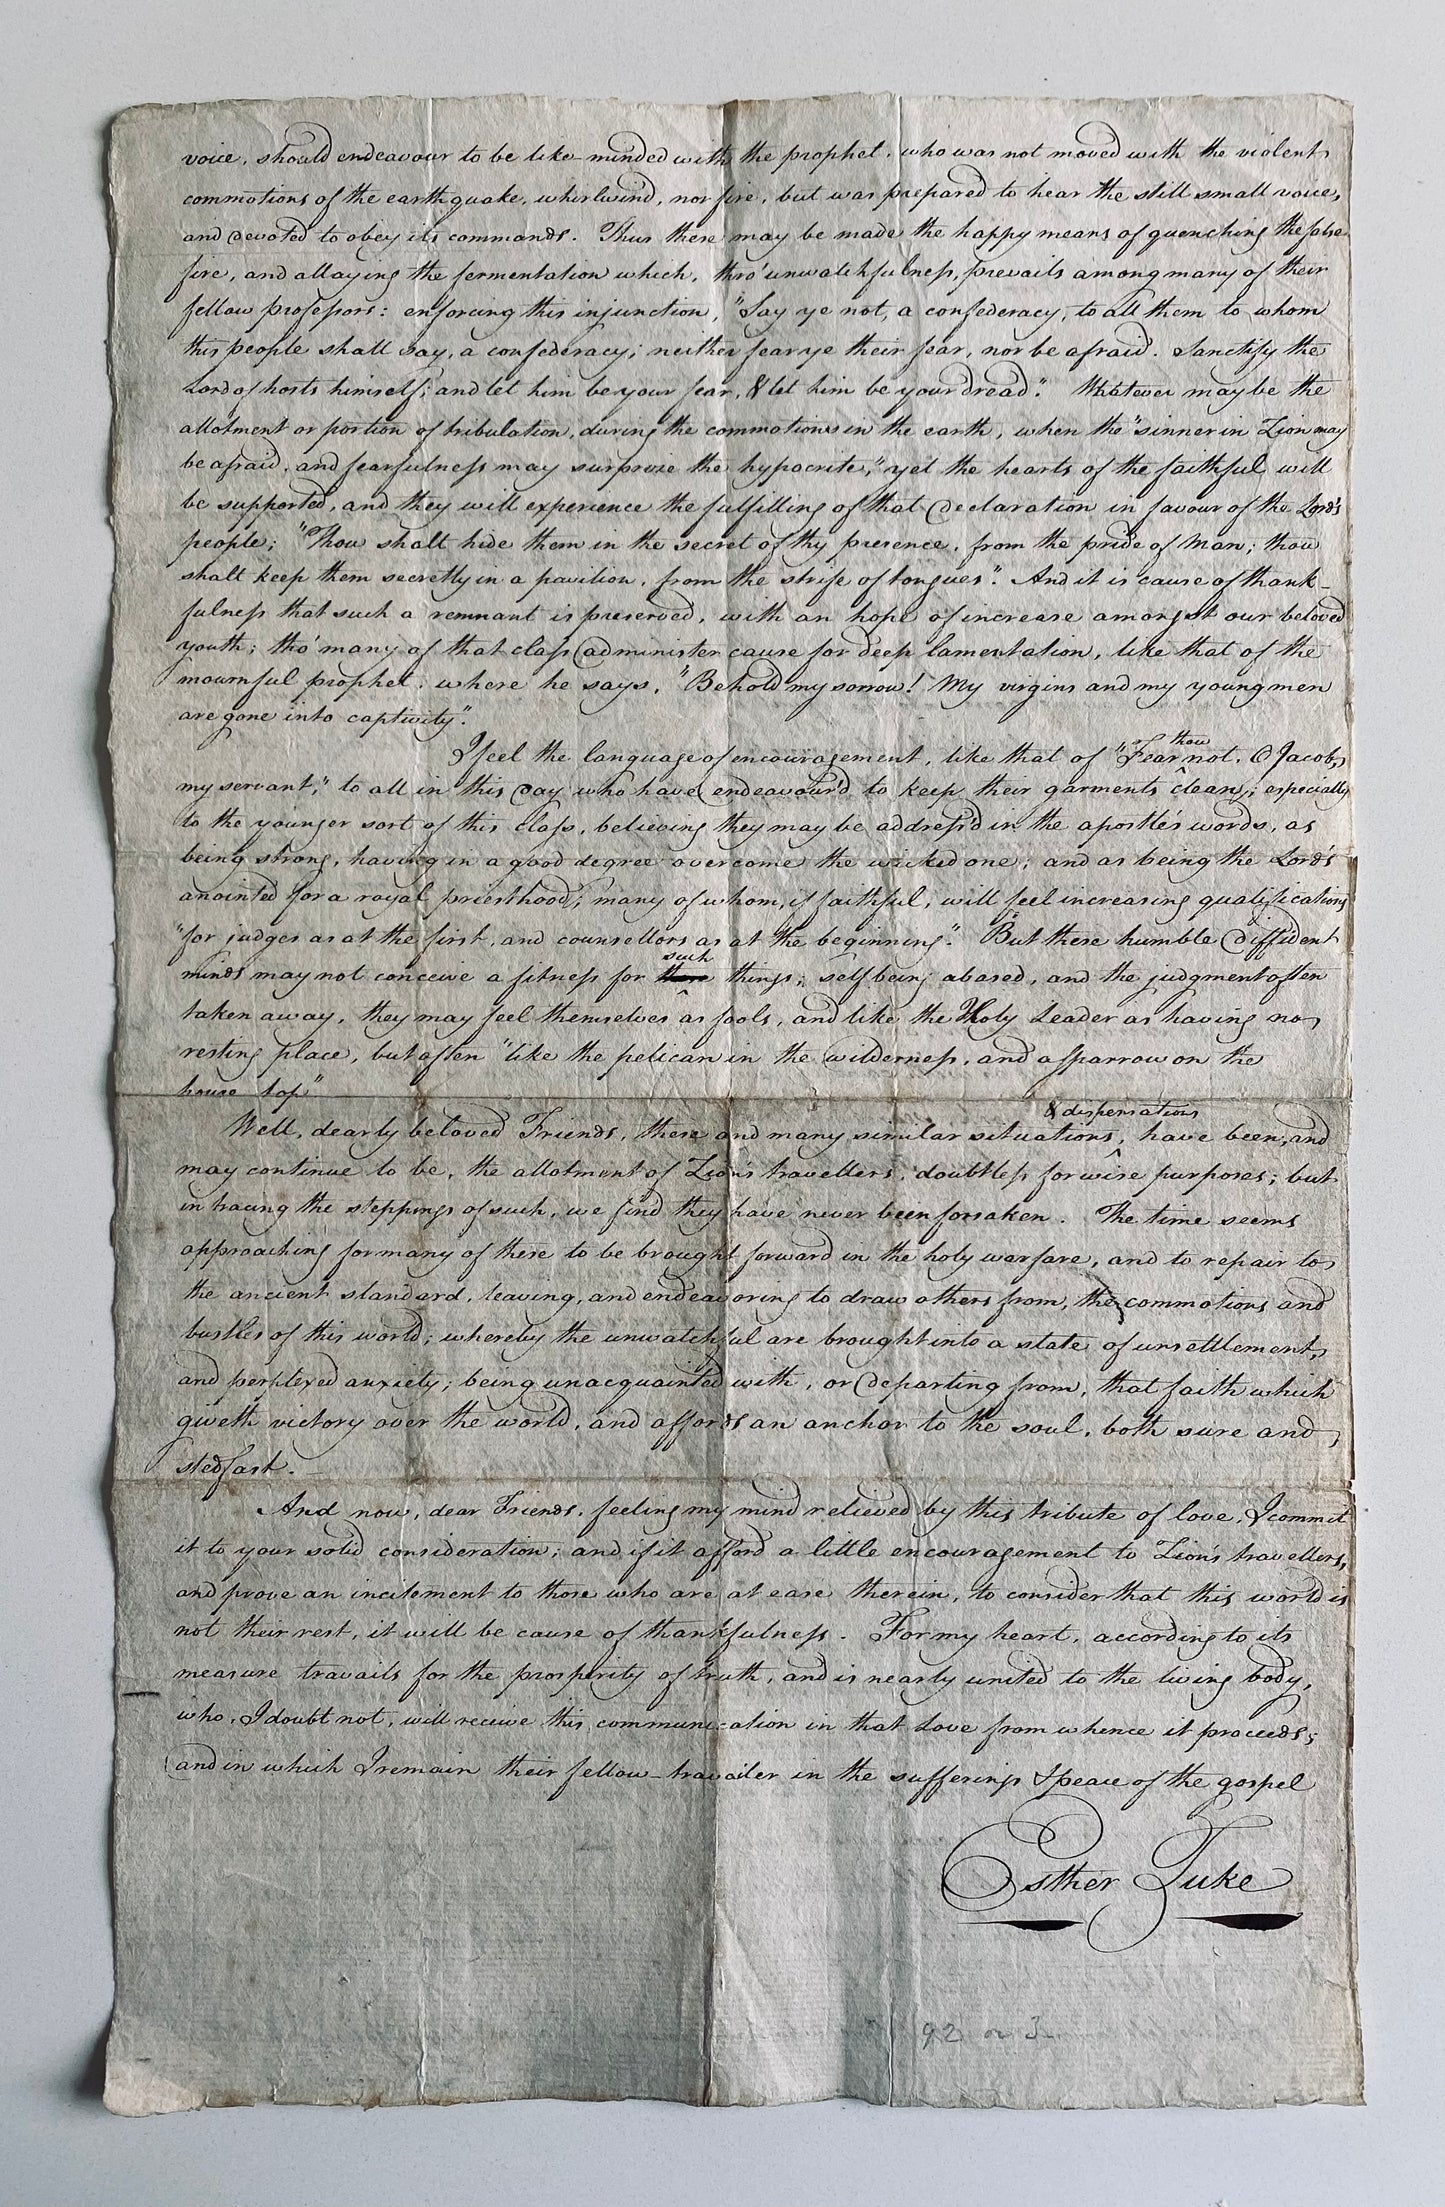 voice, should endeavour to be like-minded with the prophet, who was not moved with the violent
commotions of the earthquake, whirlwind, nor fire, but was prepared to hear the still small voice,
and devoted to obey its commands. Thus these may be made the happy means of quenching the false
fire, and allaying the fermentation which, thro' unwatchfulness, prevails among many of their
fellow professors: enforcing this injunction, "Say ye not, a confederacy, to all them to whom
this people shall say, a confederacy; neither fear ye their fear, nor be afraid. Sanctify the
Lord of hosts himself; and let him be your fear, & let him be your dread." Whatever may be the
allotment or portion of tribulation, during the commotions in the earth, when the "sinner in Zion may
be afraid, and fearfulness may surprize the hypocrite," yet the hearts of the faithful will
be supported, and they will experience the fulfilling of that declaration in favour of the Lord's
people; "Thou shalt hide them in the secret of thy presence, from the pride of Man; thou
shalt keep them secretly in a pavilion, from the strife of tongues". And it is cause of thank-
fulness that such a remnant is preserved, with an hope of increase amongst our beloved
youth; tho' many of that class administer cause for deep lamentation, like that of the
mournful prophet, where he says, "Behold my sorrow! My virgins and my young men
are gone into captivity".
thou
I feel the language of encouragement, like that of "Fear ^ not, O Jacob,
my servant," to all in this day who have endeavour'd to keep their garments clean; especially
to the younger sort of this class, believing they may be address'd in the apostle's words, as
being strong, having in a good degree overcome the wicked one; and as being the Lord's
anointed for a royal priesthood; many of whom, if faithful, will feel increasing qualifications
"for judges as at the first, and counsellors as at the beginning". But these humble diffident
such
minds may not conceive a fitness for ^ things; self being abased, and the judgment often
taken away, they may feel themselves as fools, and like the Holy Leader as having no
resting place, but often "like the pelican in the wilderness, and a sparrow on the
house top"
& dispensations
Well, dearly beloved Friends, these and many similar situations, ^ have been, and
may continue to be, the allotment of Zion's travellers, doubtless for wise purposes; but
in tracing the steppings of such, we find they have never been forsaken. The time seems
approaching for many of these to be brought forward in the holy warfare, and to repair to
the ancient standard, leaving, and endeavoring to draw others from, the commotions and
bustles of this world; whereby the unwatchful are brought into a state of unsettlement,
and perplexed anxiety; being unacquainted with, or departing from, that faith which
giveth victory over the world, and affords an anchor to the soul, both sure and
stedfast.
And now, dear Friends, feeling my mind relieved by this tribute of love, I commit
it to your solid consideration; and if it afford a little encouragement to Zion's travellers,
and prove an incitement to those who are at ease therein, to consider that this world is
not their rest, it will be cause of thankfulness. For my heart, according to its
measure travails for the prosperity of truth, and is nearly united to the living body,
who, I doubt not, will receive this communication in that Love from whence it proceeds;
and in which I remain their fellow-travailer in the sufferings & peace of the gospel
Esther Tuke
92 or 3